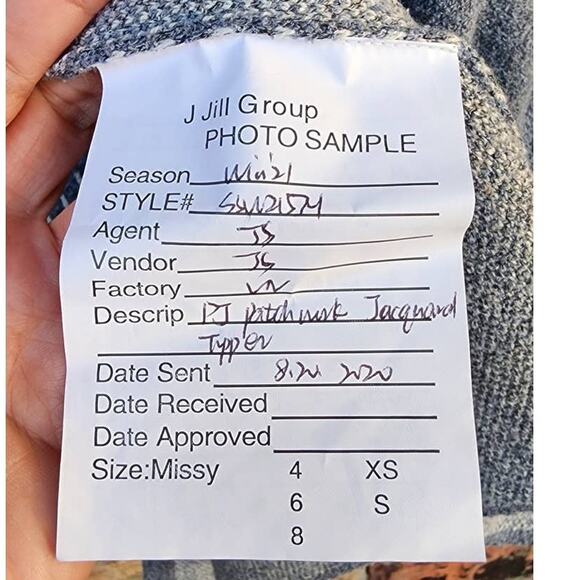 J Jill Group
PHOTO SAMPLE
Season Win'21
STYLE#
Agent JS
Vendor JS
Factory VN
Descrip PJ patchwork Jacquard
Topper
Date Sent 8.20 2020
Date Received
Date Approved
Size:Missy 4 XS
6 S
8